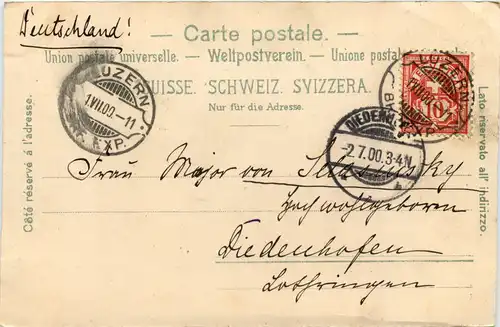 Deutschland!
— Carte postale. —
Union postale universelle. — Weltpostverein. — Unione postale
SUISSE. SCHWEIZ. SVIZZERA.
Nur für die Adresse.
Côté réservé à l'adresse.
Lato riservato all' indirizzo.
LUZERN
1.VII.00.-11
EXP.
LUZERN
EXP.
10
DIEDENH
2.7.00.3-4N
Frau Major von
Hochwohlgeboren
Diedenhofen
Lothringen